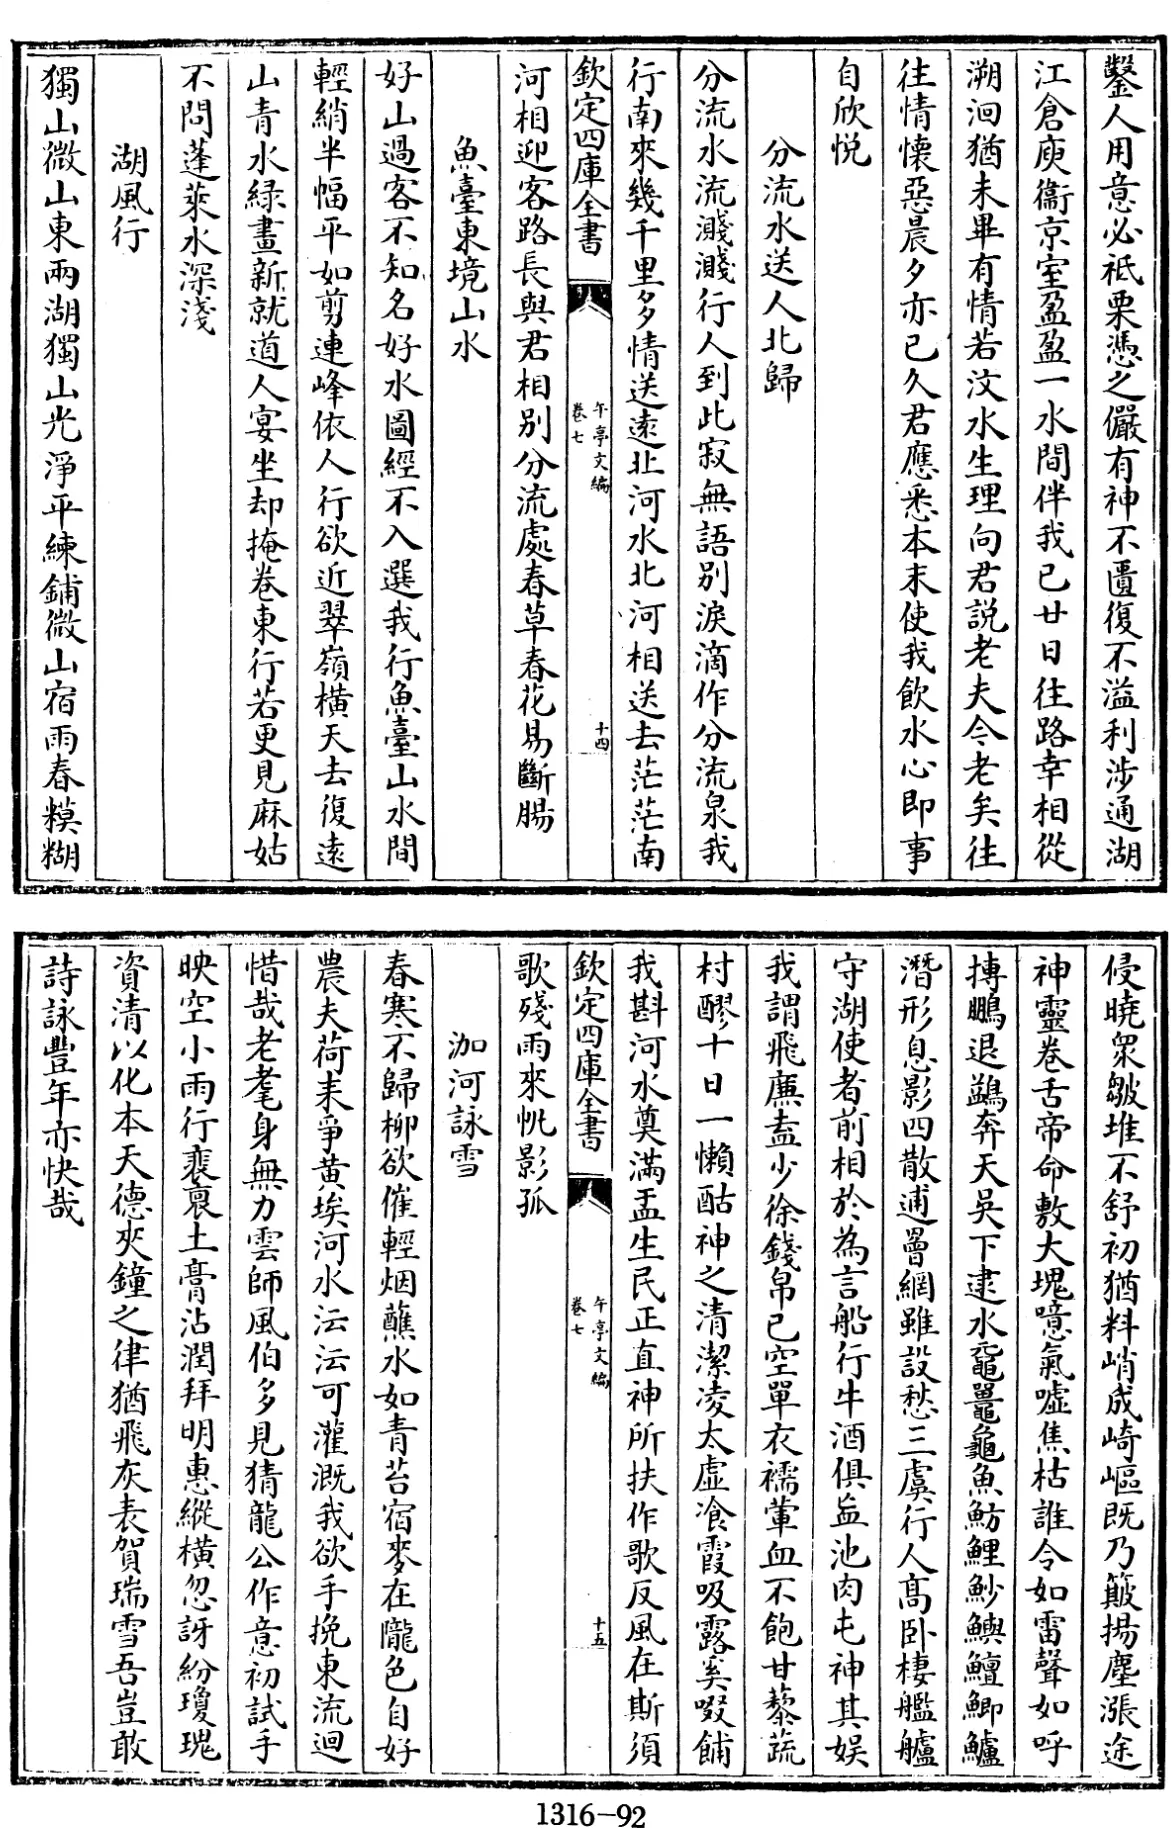 鑿人用意必祗栗憑之儼有神不匱復不溢利涉通湖
江倉庾衞京室盈盈一水間伴我已廿日往路幸相從
溯洄猶未畢有情若汶水生理向君說老夫今老矣往
往情懷惡晨夕亦已久君應悉本末使我飲水心即事
自欣悦
分流水送人北歸
分流水流濺濺行人到此寂無語別淚滴作分流泉我
行南來幾千里多情送遠北河水北河相送去茫茫南
欽定四庫全書
午亭文編
卷七
十四
河相迎客路長與君相別分流處春草春花易斷腸
魚臺東境山水
好山過客不知名好水圖經不入選我行魚臺山水間
輕綃半幅平如剪連峰依人行欲近翠嶺橫天去復遠
山青水綠畫新就道人宴坐却掩卷東行若更見麻姑
不問蓬萊水深淺
湖風行
獨山微山東兩湖獨山光淨平練鋪微山宿雨春糢糊
侵曉衆皺堆不舒初猶料峭成崎嶇既乃簸揚塵漲途
神靈卷舌帝命敷大塊噫氣噓焦枯誰令如雷聲如呼
摶鵬退鷁奔天吳下逮水黿鼉龜魚魴鯉魦鱮鱣鯽鱸
潛形息影四散逋罾網雖設愁三虞行人髙卧棲艦艫
守湖使者前相於為言船行牛酒俱盆池肉屯神其娱
我謂飛廉盍少徐錢帛已空單衣襦葷血不飽甘藜蔬
村醪十日一懶酤神之清潔凌太虚飡霞吸露奚啜餔
我斟河水奠滿盂生民正直神所扶作歌反風在斯須
欽定四庫全書
午亭文編
卷七
十五
歌殘雨來帆影孤
泇河詠雪
春寒不歸柳欲催輕烟蘸水如青苔宿麥在隴色自好
農夫荷耒爭黄埃河水沄沄可灌溉我欲手挽東流迴
惜哉老耄身無力雲師風伯多見猜龍公作意初試手
映空小雨行裵裵土膏沾潤拜明惠縱橫忽訝紛瓊瑰
資清以化本天德夾鐘之律猶飛灰表賀瑞雪吾豈敢
詩詠豐年亦快哉
1316-92